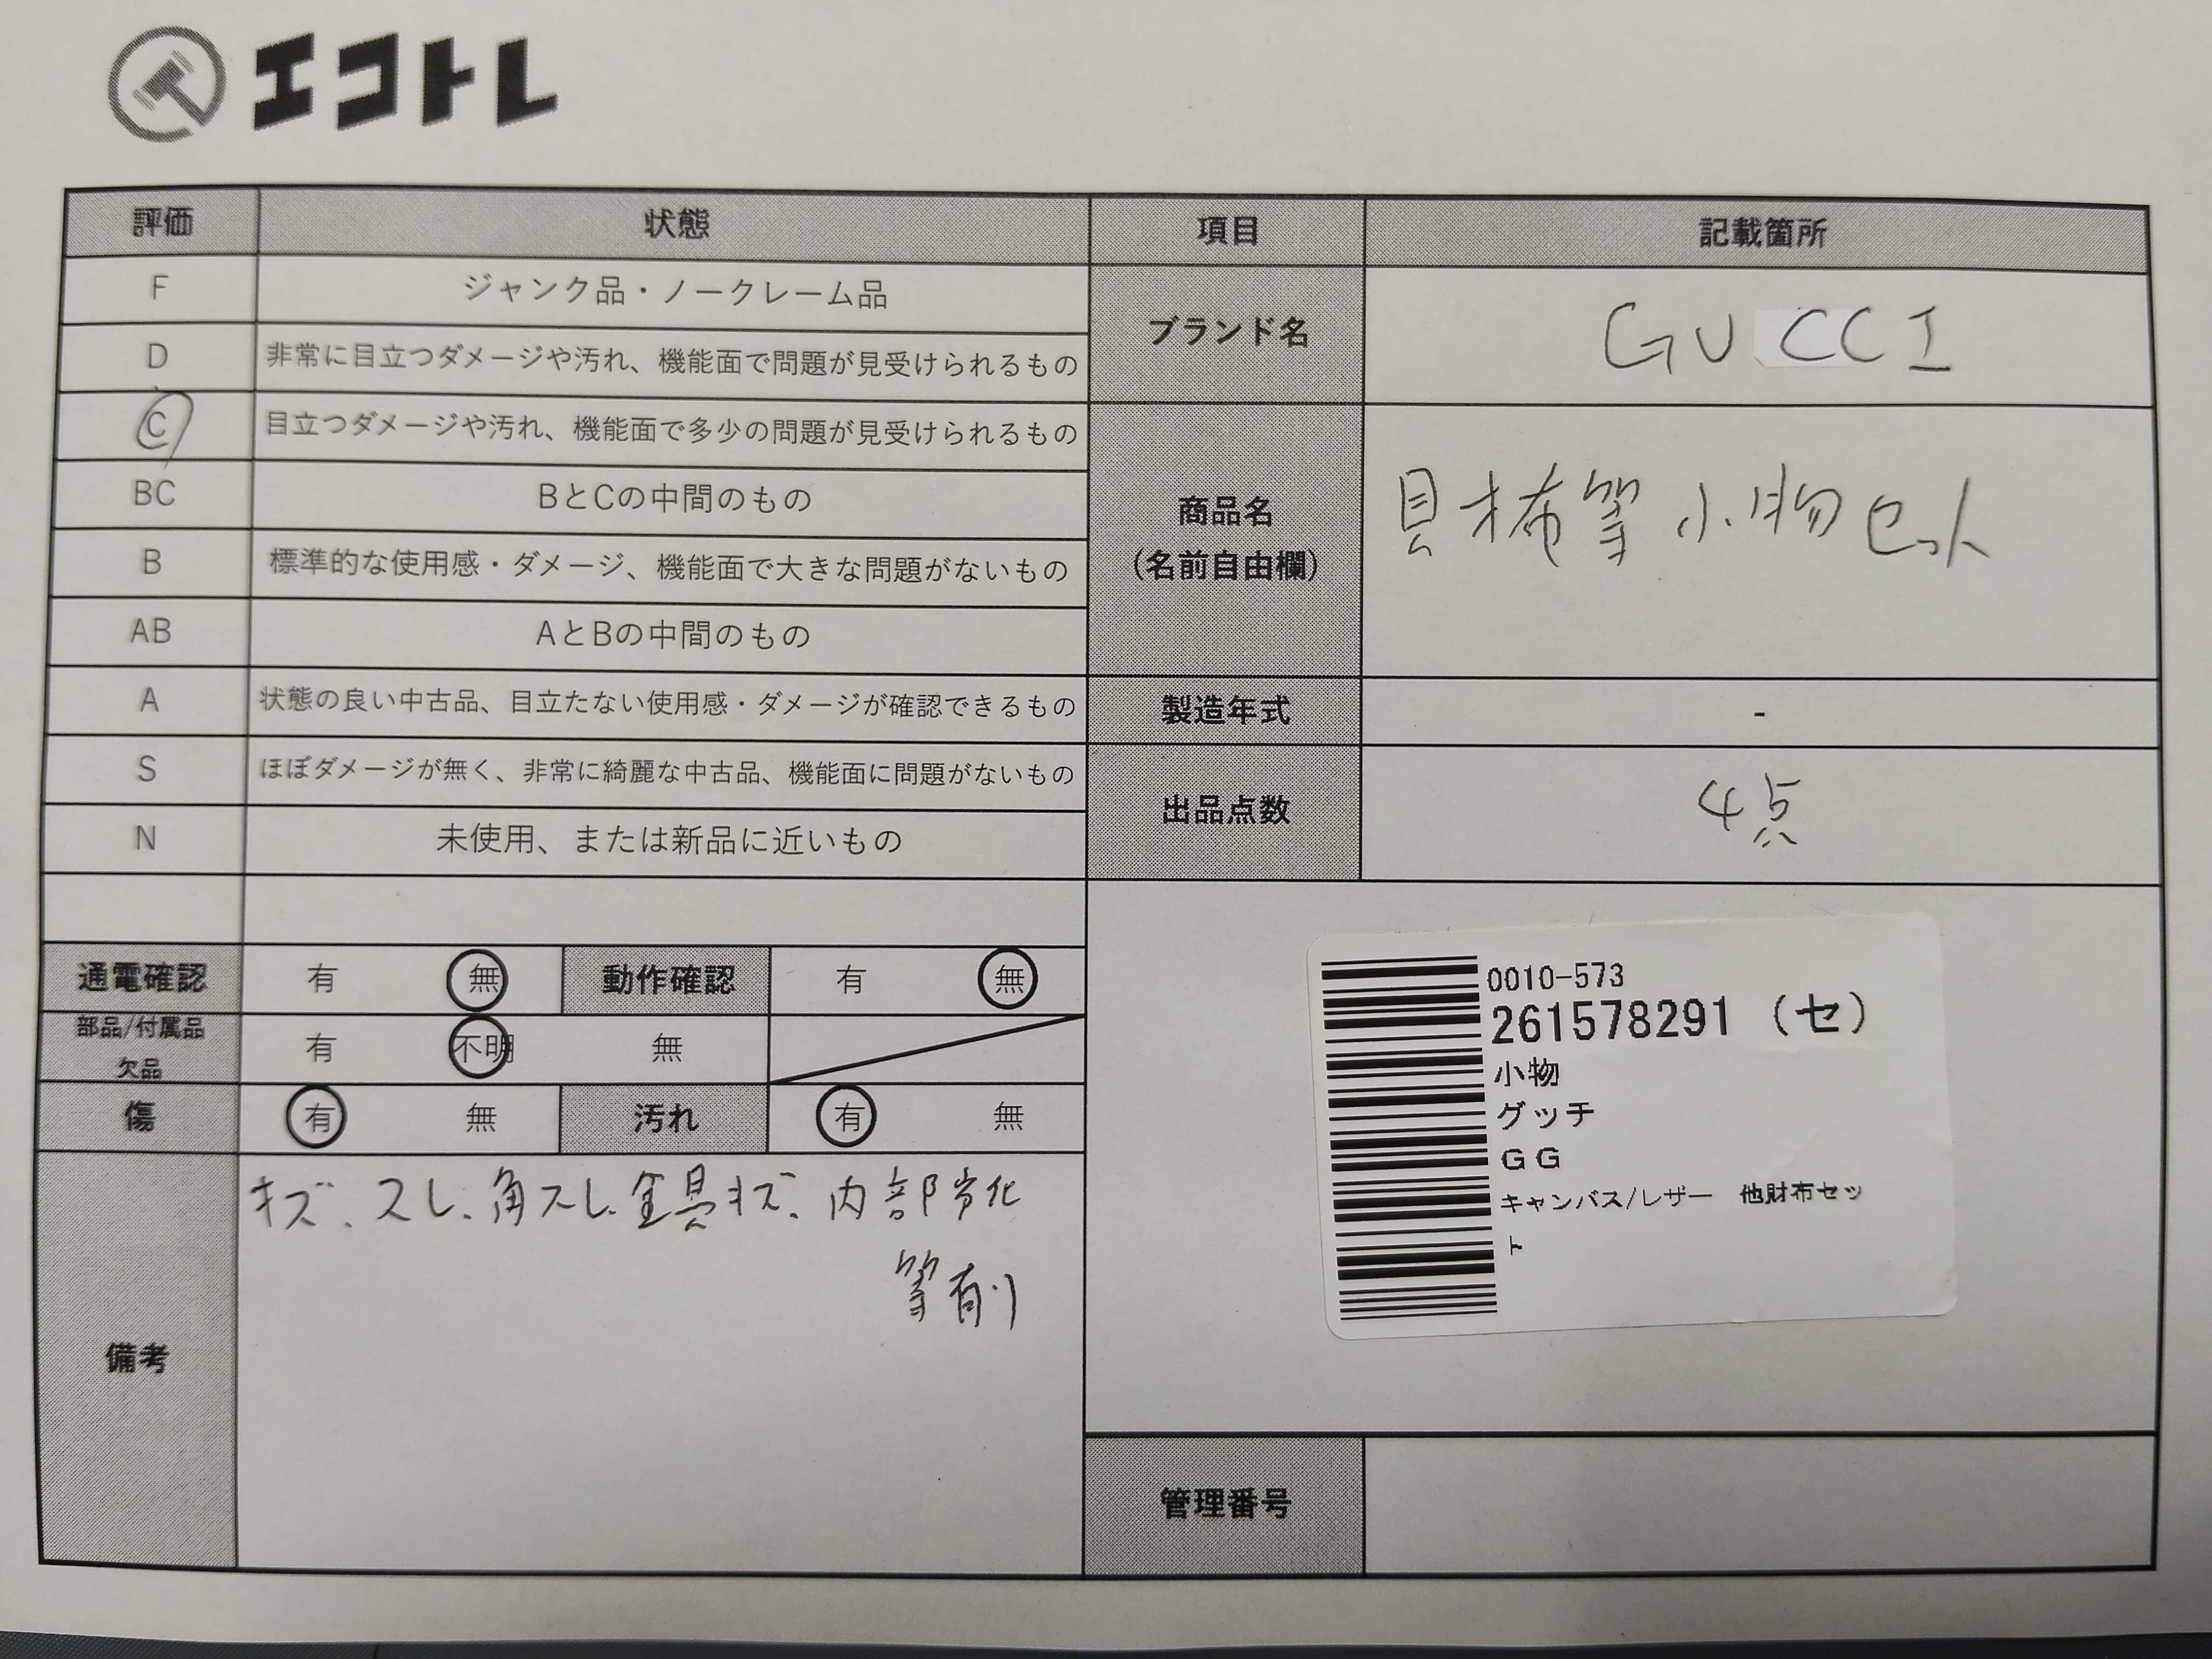 エコトレ
評価 状態 項目 記載箇所
F ジャンク品・ノークレーム品
D 非常に目立つダメージや汚れ、機能面で問題が見受けられるもの
C 目立つダメージや汚れ、機能面で多少の問題が見受けられるもの
BC BとCの中間のもの
B 標準的な使用感・ダメージ、機能面で大きな問題がないもの
AB AとBの中間のもの
A 状態の良い中古品、目立たない使用感・ダメージが確認できるもの
S ほぼダメージが無く、非常に綺麗な中古品、機能面に問題がないもの
N 未使用、または新品に近いもの
ブランド名 GUCCI
商品名
(名前自由欄)
財布等小物セット
製造年式 -
出品点数 4点
通電確認 有 無 動作確認 有 無
部品/付属品
欠品
有 不明 無
傷 有 無 汚れ 有 無
備考
キズ、スレ、角スレ、金具キズ、内部劣化
等有り
0010-573
261578291 (セ)
小物
グッチ
GG
キャンバス/レザー 他財布セッ
ト
管理番号